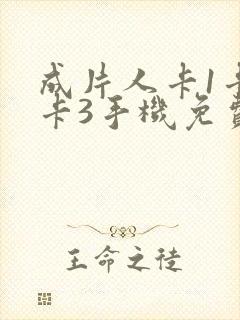 成片人卡1卡
卡3手機免費
王命之徒